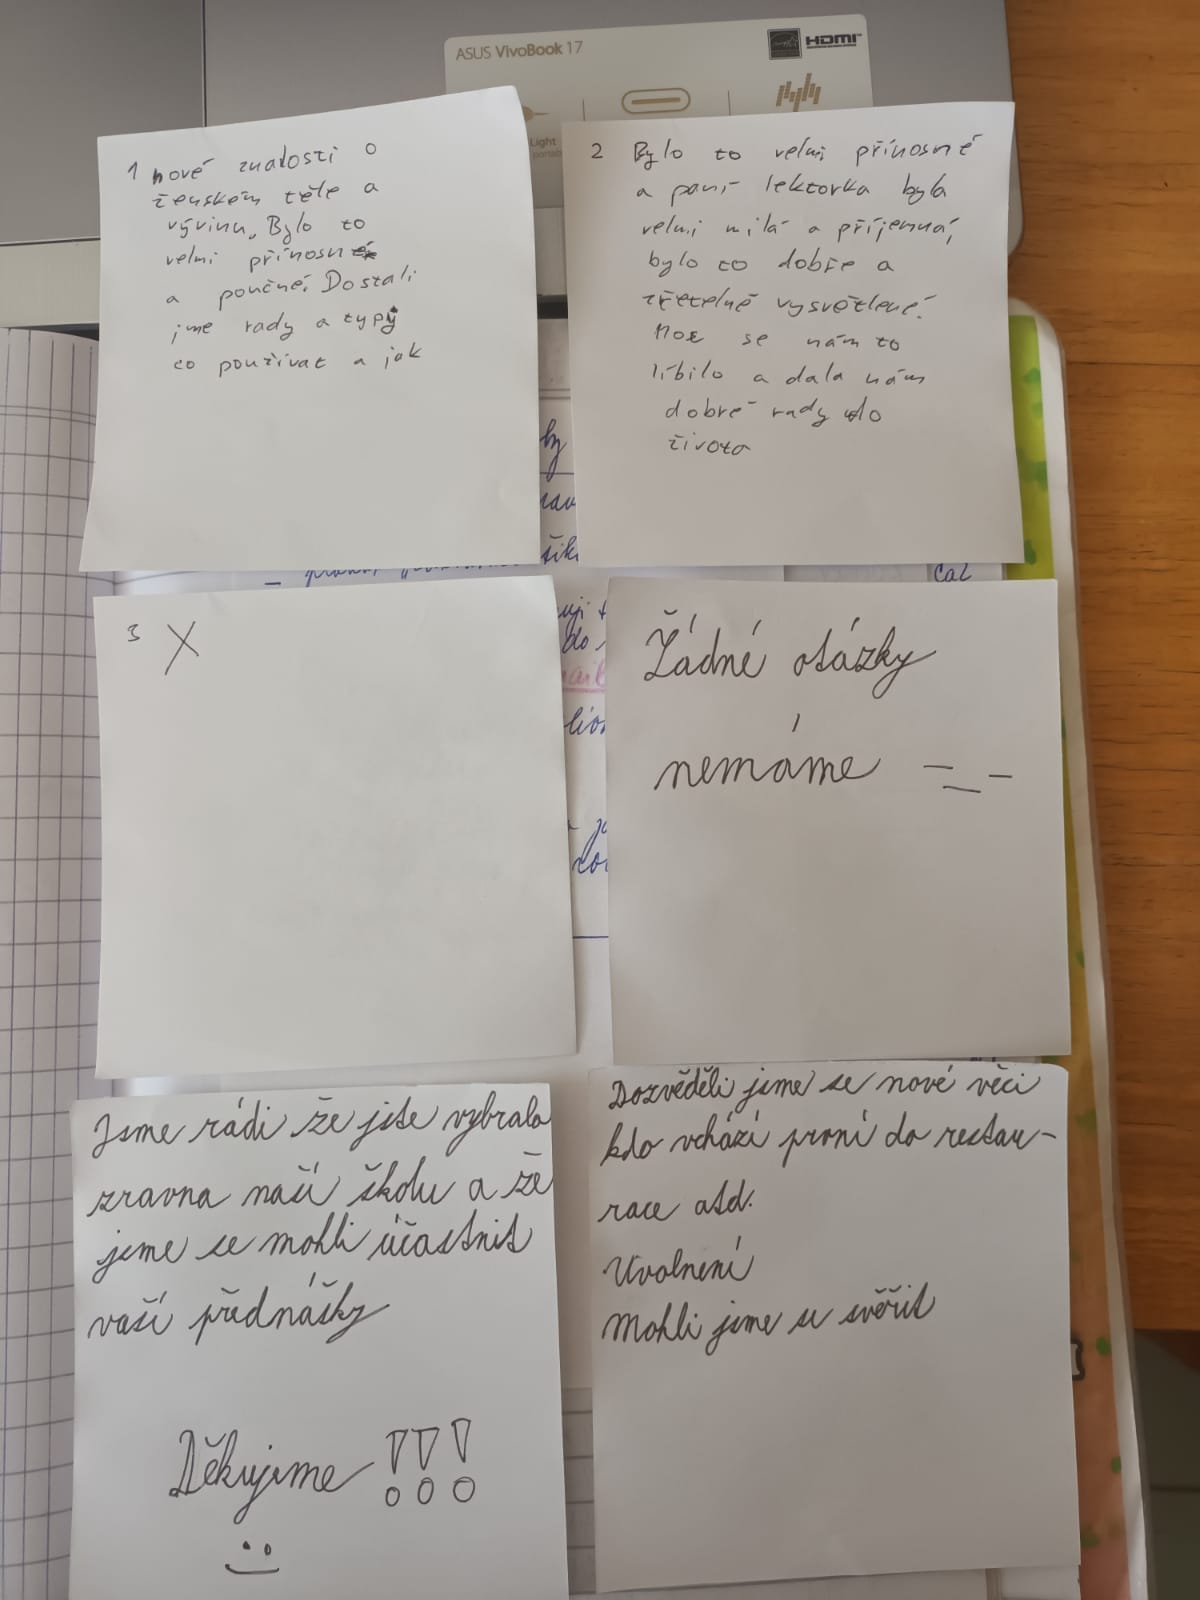 ASUS VivoBook 17
HDMI
Light
1 nové znalosti o
ženském těle a
vývinu. Bylo to
velmi přínosné
a poučné. Dostali
jme rady a typy
co používat a jak
2 Bylo to velmi přínosné
a paní lektorka byla
velmi milá a příjemná,
bylo to dobře a
zřetelně vysvětlené.
Moc se nám to
líbilo a dala nám
dobré rady do
života
by
čal
3 X
Žádné otázky
nemáme -_-
Jsme rádi že jste vybrala
zravna naší školu a že
jsme se mohli účastnit
vaší přednášky
Děkujeme !!!
Dozvěděli jsme se nové věci
kdo vchází první do restau-
race atd.
Uvolnění
Mohli jsme se svěřit